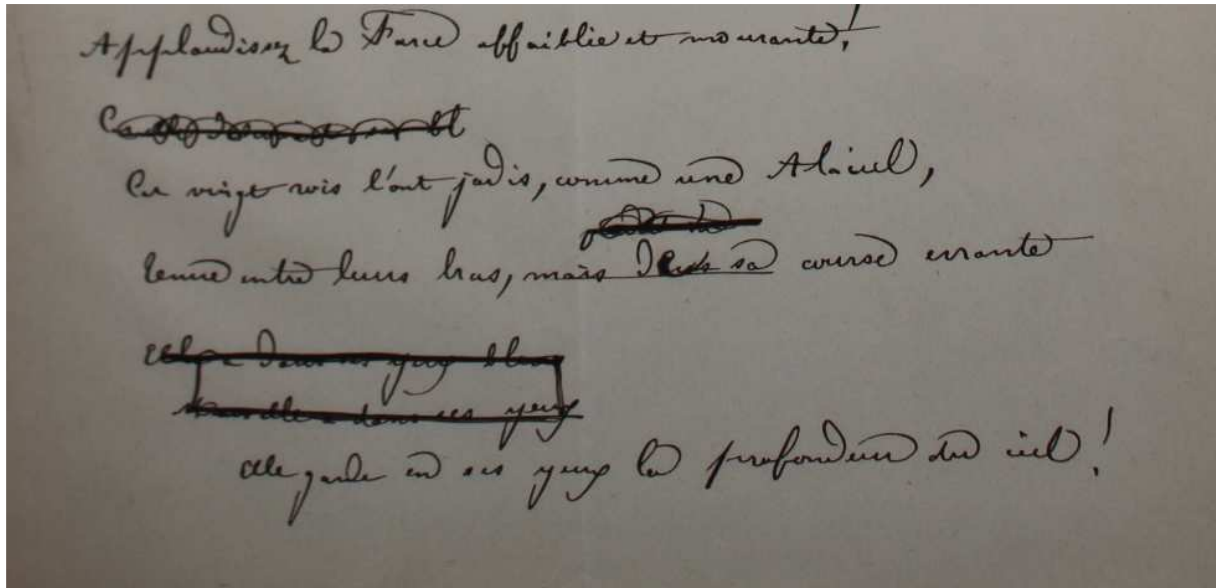 Applaudissez la Farce affaiblie et mourante!
Car vingt rois l'ont jadis, comme une Alaciel,
tenue entre leurs bras, mais dans sa course errante
dans ses yeux bleus
dans ses yeux
elle garde en ses yeux la profondeur du ciel!